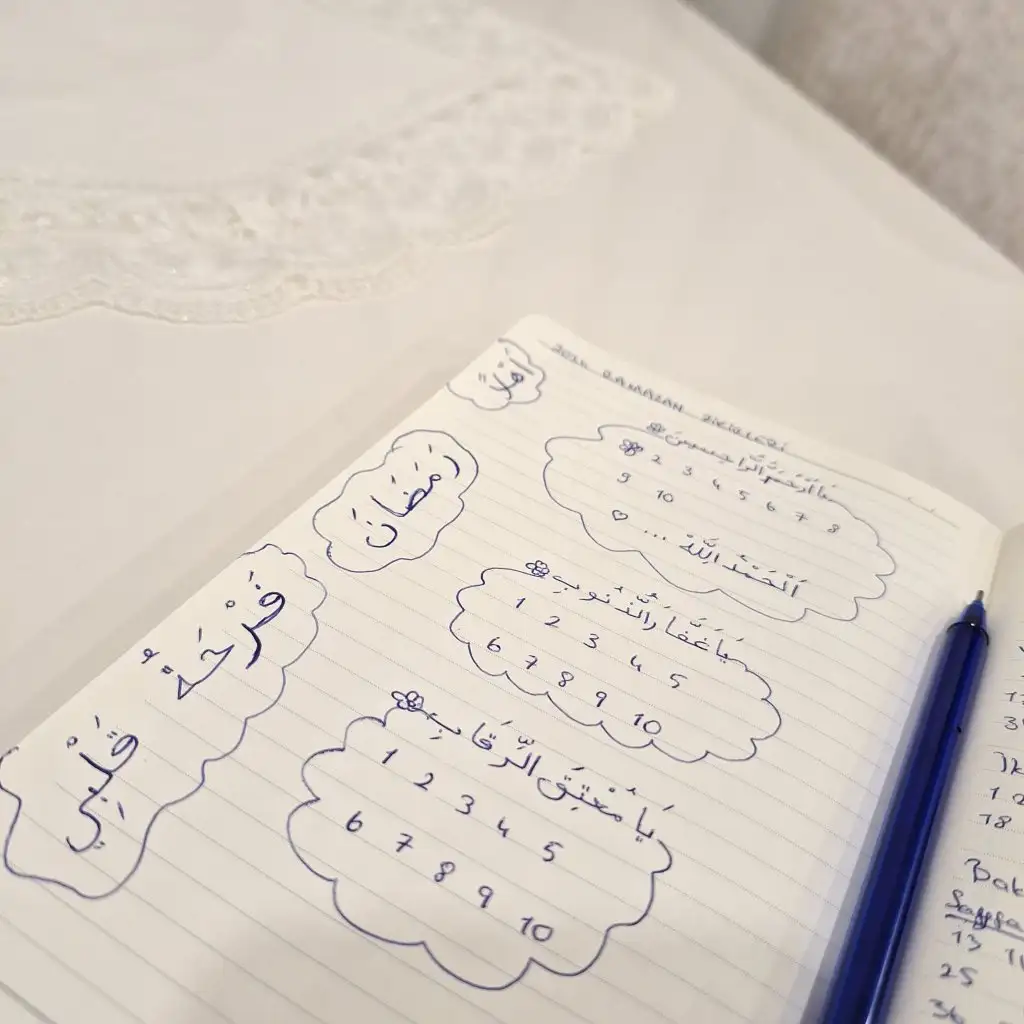 RAMAZAN ZİKİRLERİ
أَهْلًا
رَمَضَانَ
فَرْحَةُ
قَلْبَيِ
يَا أَرْحَمَ الرَّاحِمِينَ
2 3 4 5 6 7 8
9 10
اَلْحَمْدُ لِلّٰهْ ...
يَا غَفَّارَ الذُّنُوبِ
1 2 3 4 5
6 7 8 9 10
يَا مُعْتِقَ الرِّقَابِ
1 2 3 4 5
6 7 8 9 10
18
13
25
36